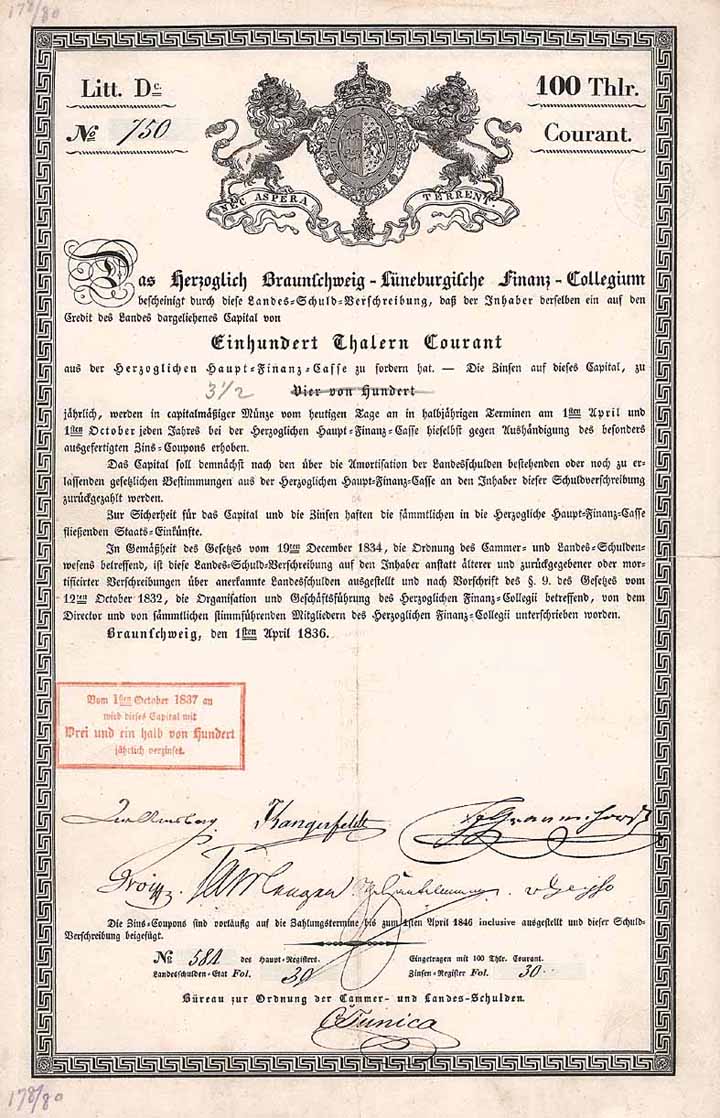 178/80
Litt. Dc.
100 Thlr.
No 750
Courant.
NEC ASPERA TERRENT.
Das Herzoglich Braunschweig-Lüneburgische Finanz-Collegium
bescheinigt durch diese Landes-Schuld-Verschreibung, daß der Inhaber derselben ein auf den
Credit des Landes dargeliehenes Capital von
Einhundert Thalern Courant
aus der Herzoglichen Haupt-Finanz-Casse zu fordern hat. — Die Zinsen auf dieses Capital, zu
3 1/2 Vier von Hundert
jährlich, werden in capitalmäßiger Münze vom heutigen Tage an in halbjährigen Terminen am 1sten April und
1sten October jeden Jahres bei der Herzoglichen Haupt-Finanz-Casse hieselbst gegen Aushändigung des besonders
ausgefertigten Zins-Coupons erhoben.
Das Capital soll demnächst nach den über die Amortisation der Landesschulden bestehenden oder noch zu er-
lassenden gesetzlichen Bestimmungen aus der Herzoglichen Haupt-Finanz-Casse an den Inhaber dieser Schuldverschreibung
zurückgezahlt werden.
Zur Sicherheit für das Capital und die Zinsen haften die sämmtlichen in die Herzogliche Haupt-Finanz-Casse
fließenden Staats-Einkünfte.
In Gemäßheit des Gesetzes vom 19ten December 1834, die Ordnung des Cammer- und Landes-Schulden-
wesens betreffend, ist diese Landes-Schuld-Verschreibung auf den Inhaber anstatt älterer und zurückgegebener oder mor-
tificirter Verschreibungen über anerkannte Landesschulden ausgestellt und nach Vorschrift des §. 9. des Gesetzes vom
12ten October 1832, die Organisation und Geschäftsführung des Herzoglichen Finanz-Collegii betreffend, von dem
Director und von sämmtlichen stimmführenden Mitgliedern des Herzoglichen Finanz-Collegii unterschrieben worden.
Braunschweig, den 1sten April 1836.
Vom 1sten October 1837 an
wird dieses Capital mit
Drei und ein halb von Hundert
jährlich verzinset.
Langerfeldt
Die Zins-Coupons sind vorläufig auf die Zahlungstermine bis zum 1sten April 1846 inclusive ausgestellt und dieser Schuld-
Verschreibung beigefügt.
No 584 des Haupt-Registers.
Landesschulden-Etat Fol. 30
Eingetragen mit 100 Thlr. Courant.
Zinsen-Register Fol. 30
Büreau zur Ordnung der Cammer- und Landes-Schulden.
CTunica
178/80